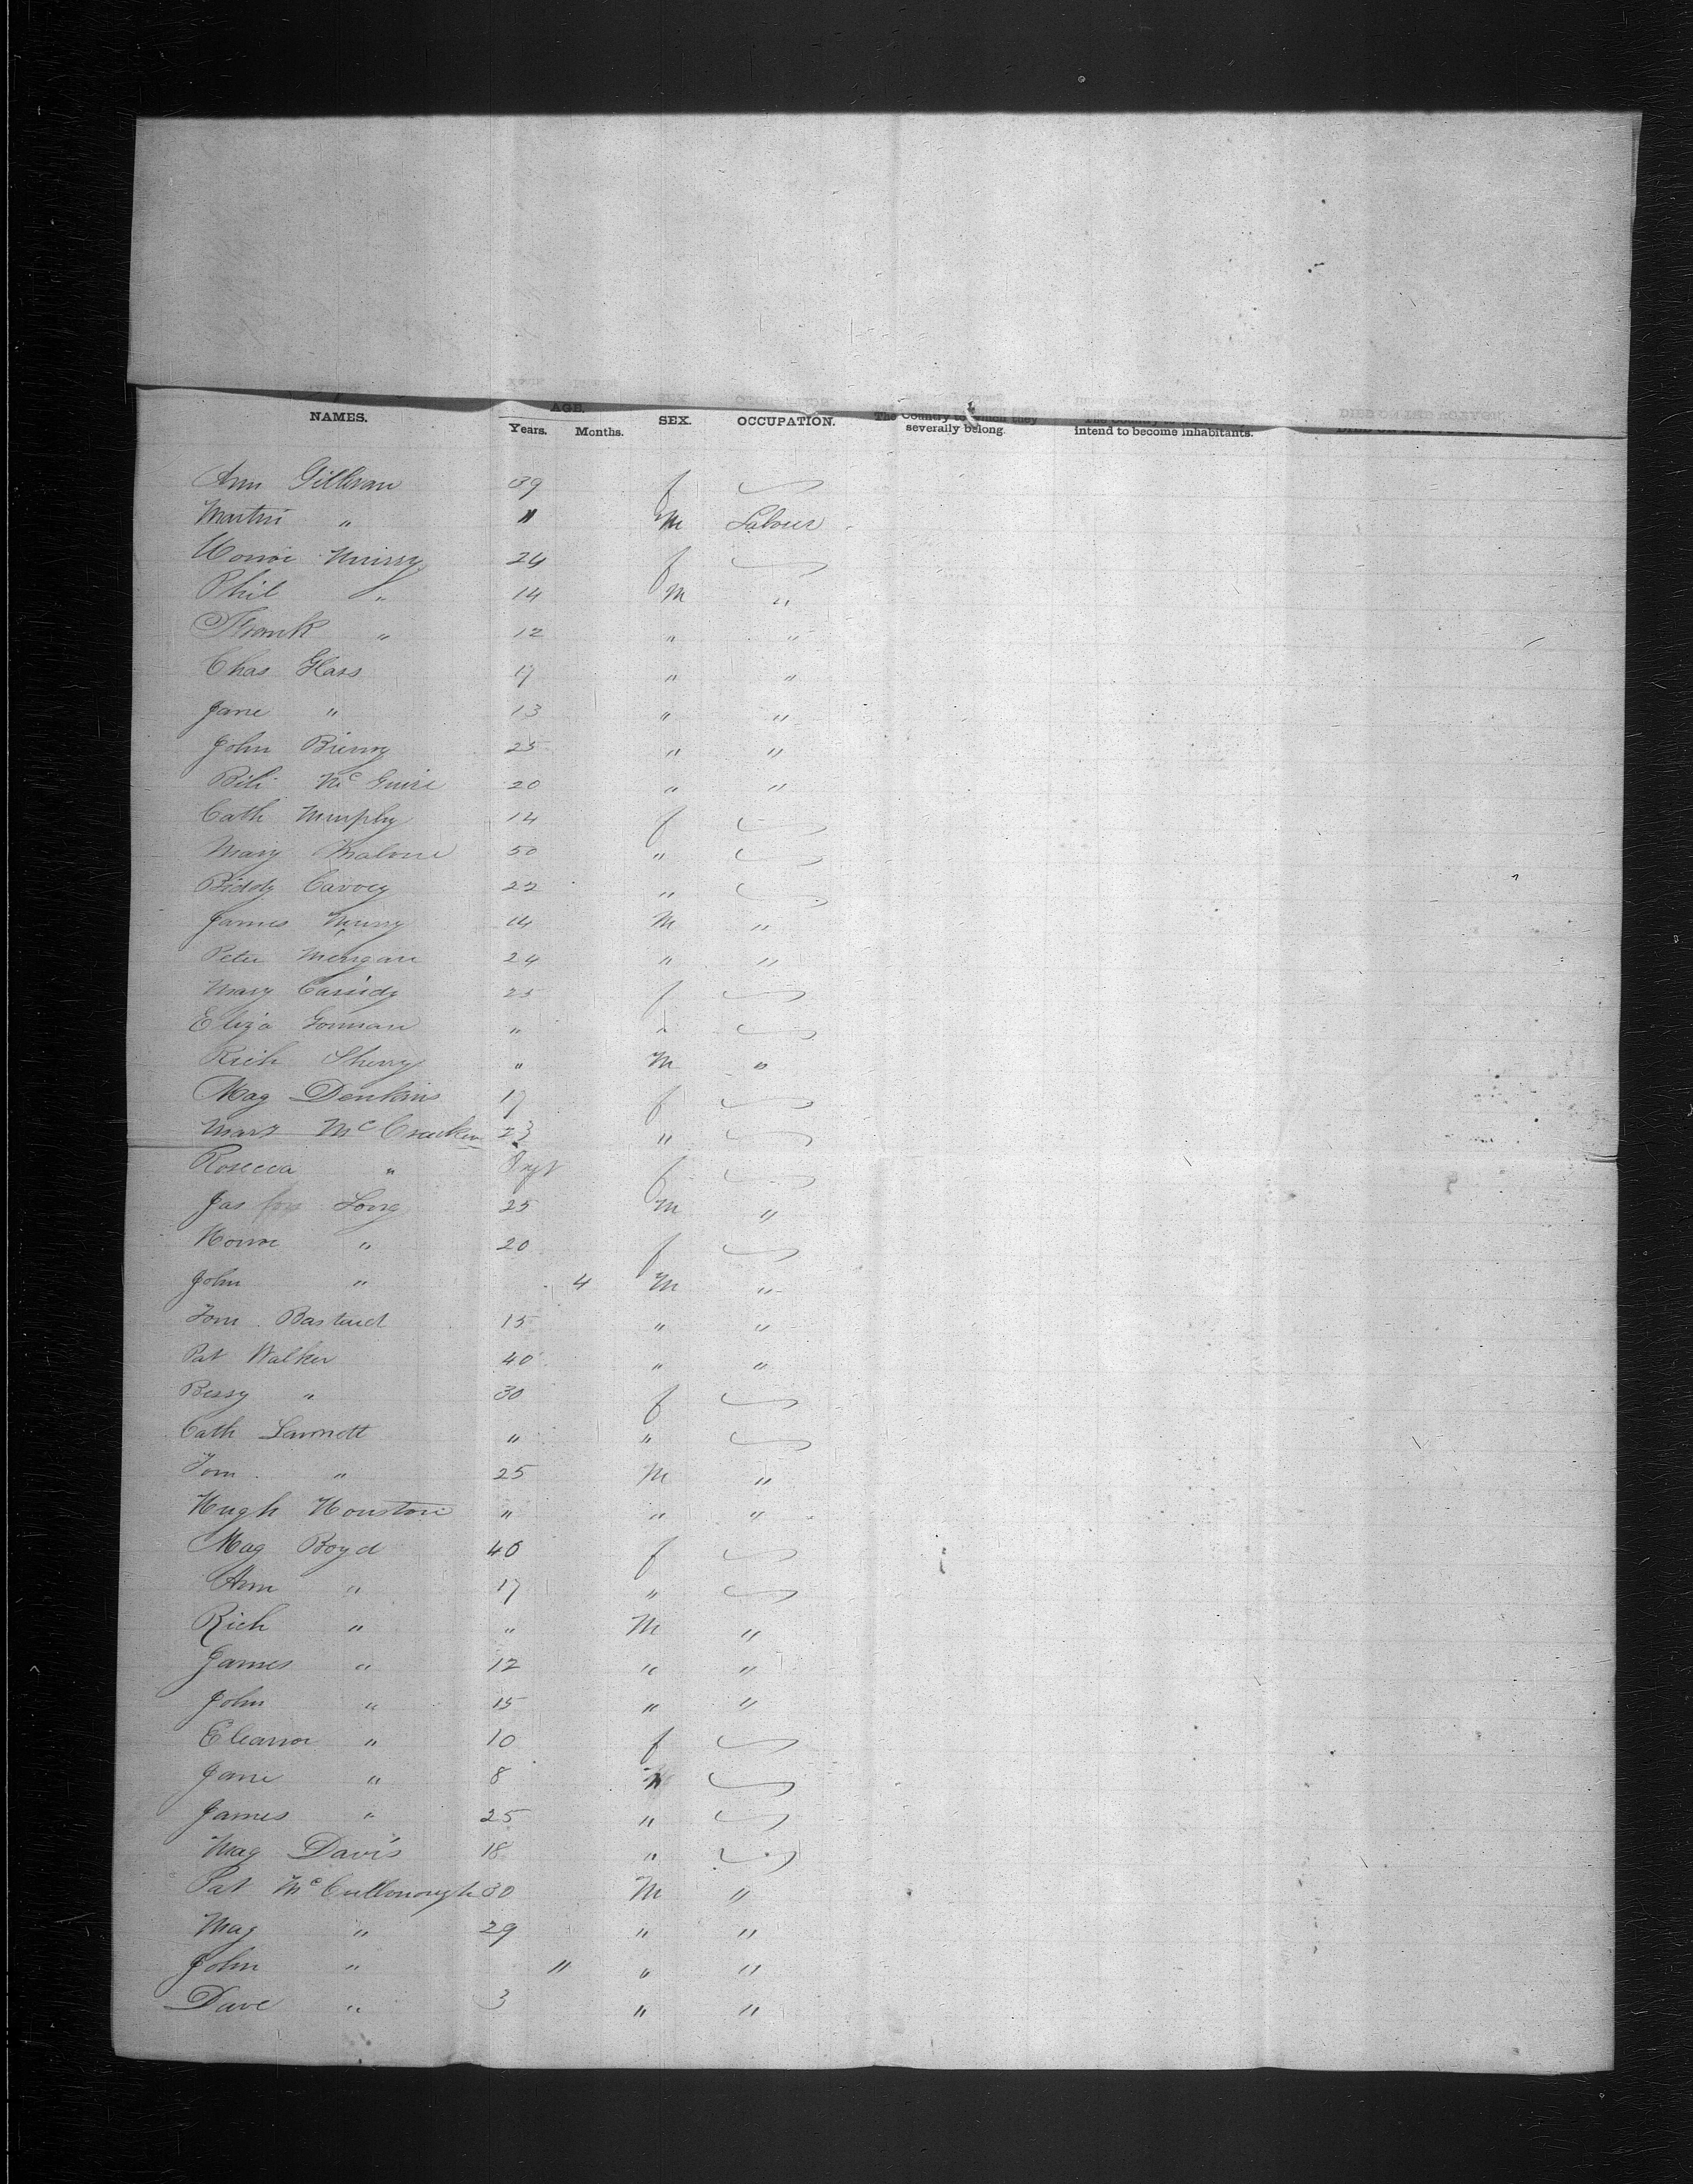 NAMES. AGE. SEX. OCCUPATION. The Country to which they
Years. Months. severally belong. intend to become inhabitants.
Ann Gillivan 39 f
Martin " " M Labour
Honor Murry 24 f
Phil " 14 M "
Frank " 12 " "
Chas Glass 17 " "
Jane " 13 " "
John Birny 25 " "
Bili Mc Guire 20 " "
Cath Murphy 14 f
Mary Malone 50 "
Biddy Cavoey 22 "
James Murry 14 M "
Peter Mengan 24 " "
Mary Cassidy 25 f
Eliza Gorman " "
Rich Sherry " M "
Mag Denkins 17 f
Mary Mc Cracken 23 "
Rosecca " f
Jas Long 25 M "
Honor " 20 f
John " 4 M "
Tom Bastard 15 " "
Pat Walker 40 " "
Bessy " 30 f
Cath Lavnett " "
Tom " 25 M "
Hugh Houston " " "
Mag Boyd 40 f
Ann " 17 "
Rich " " M "
James " 12 " "
John " 15 " "
Eleanor " 10 f
Jane " 8 "
James " 25 "
Mag Davis 18 "
Pat Mc Cullonough 30 M "
Mag " 29 " "
John " " " "
Dave " 3 " "